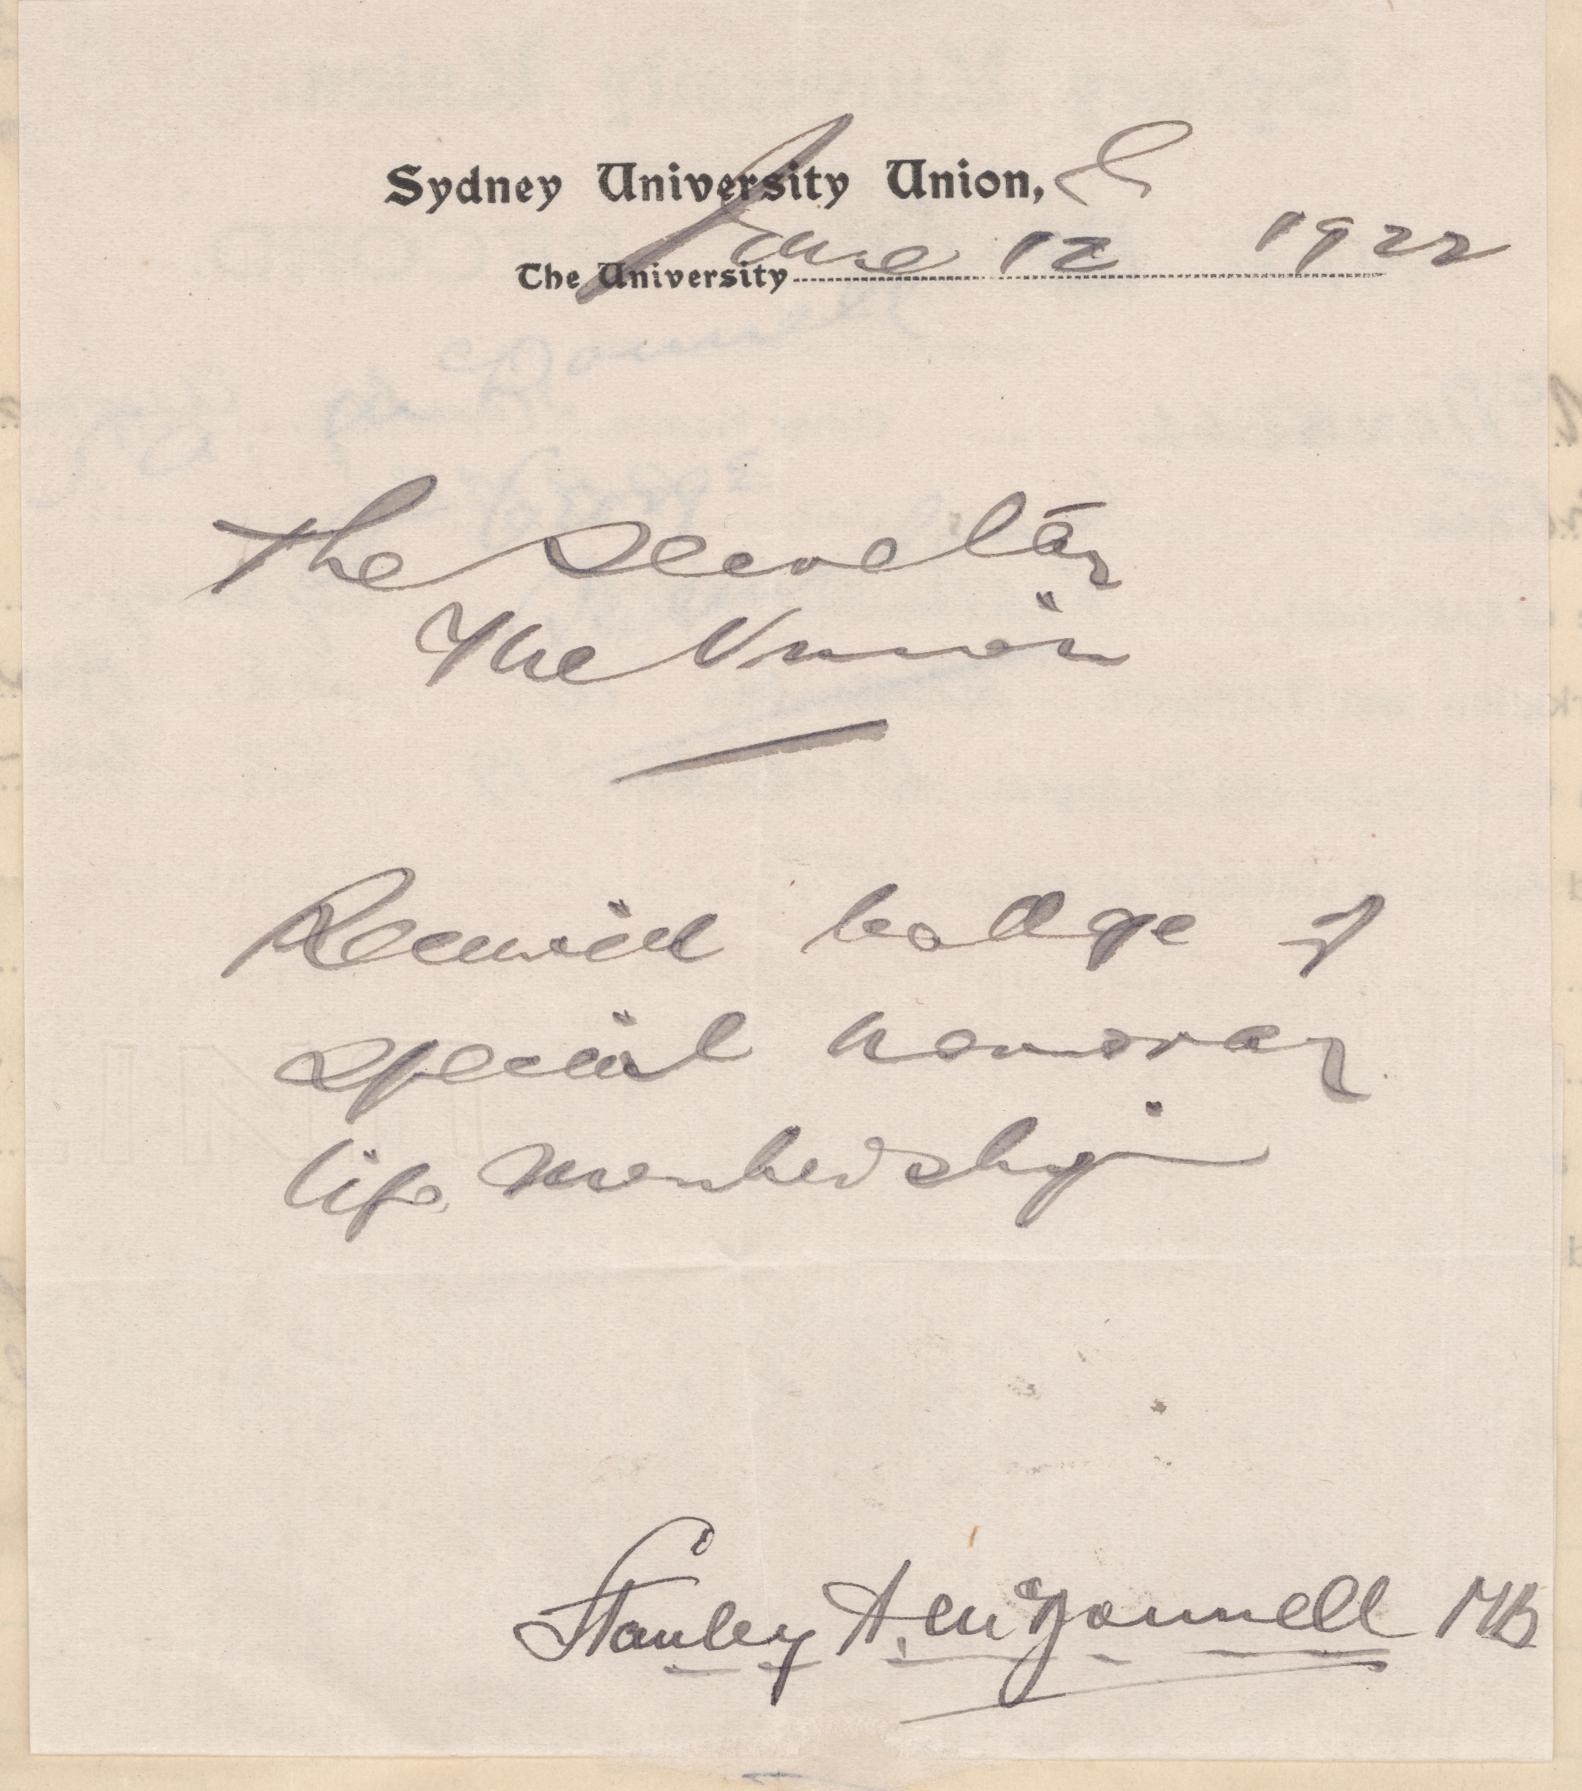 Sydney University Union,
The University June 12 1922
The Secretary
The Union
Received badge of
special honorary
life membership
Stanley A. McDonnell MB